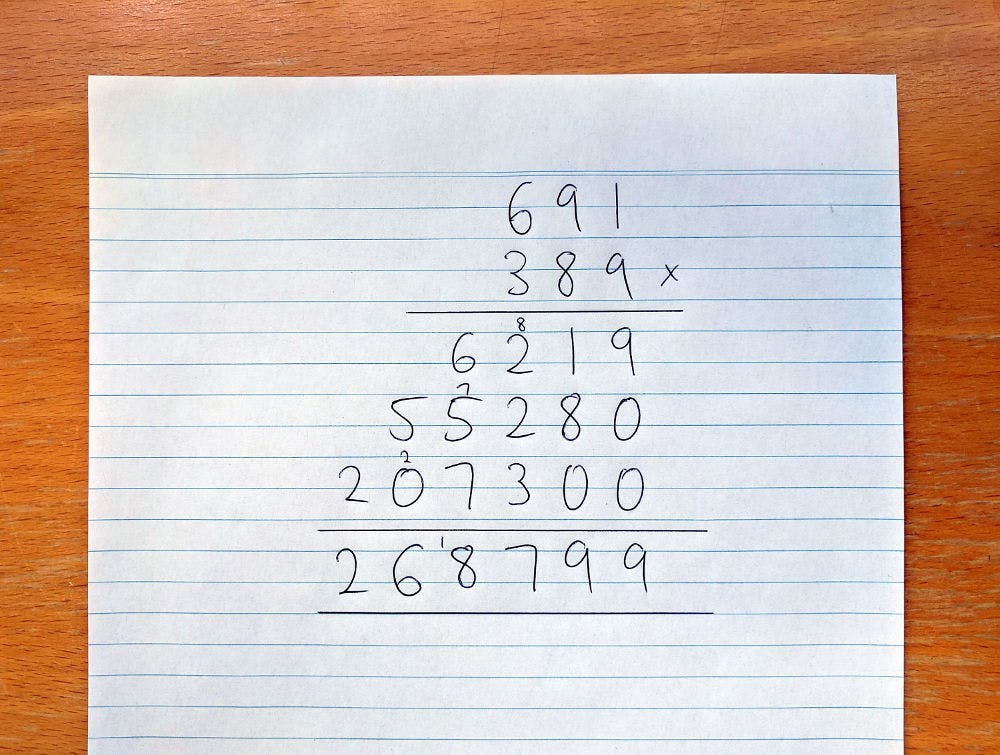 691
389 x
8
6219
7
55280
2
207300
1
268799